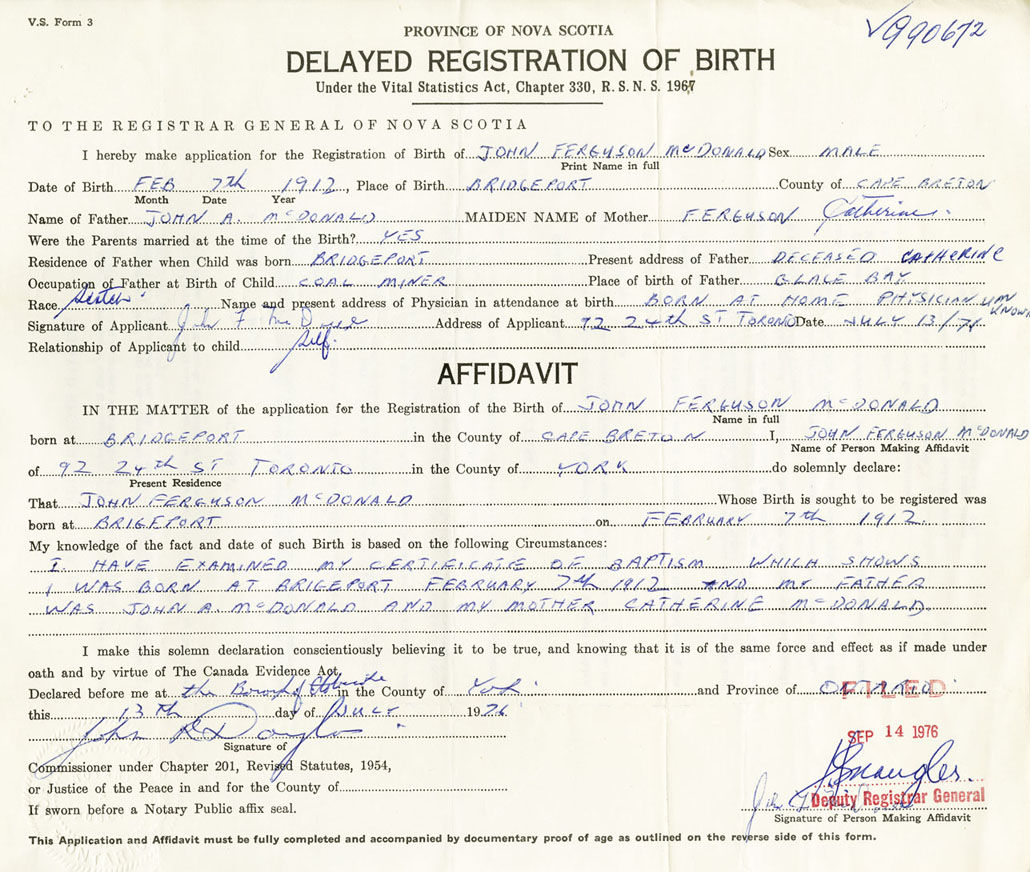 V.S. Form 3
V990672
PROVINCE OF NOVA SCOTIA
DELAYED REGISTRATION OF BIRTH
Under the Vital Statistics Act, Chapter 330, R. S. N. S. 1967
TO THE REGISTRAR GENERAL OF NOVA SCOTIA
I hereby make application for the Registration of Birth of JOHN FERGUSON McDONALD Sex MALE
Print Name in full
Date of Birth FEB 7th 1912, Place of Birth BRIDGEPORT County of CAPE BRETON
Month Date Year
Name of Father JOHN A. McDONALD MAIDEN NAME of Mother FERGUSON Catherine.
Were the Parents married at the time of the Birth? YES
Residence of Father when Child was born BRIDGEPORT Present address of Father DECEASED CATHERINE
Occupation of Father at Birth of Child COAL MINER Place of birth of Father GLACE BAY
Race Name and present address of Physician in attendance at birth BORN AT HOME PHYSICIAN UNKNOWN
Signature of Applicant John F Address of Applicant 92 24th ST TORONTO Date JULY 13/76
Relationship of Applicant to child Self.
AFFIDAVIT
IN THE MATTER of the application for the Registration of the Birth of JOHN FERGUSON McDONALD
Name in full
born at BRIDGEPORT in the County of CAPE BRETON I, JOHN FERGUSON McDONALD
Name of Person Making Affidavit
of 92 24th ST TORONTO in the County of YORK do solemnly declare:
Present Residence
That JOHN FERGUSON McDONALD Whose Birth is sought to be registered was
born at BRIGEPORT on FEBRUARY 7th 1912.
My knowledge of the fact and date of such Birth is based on the following Circumstances:
I HAVE EXAMINED MY CERTIFICATE OF BAPTISM WHICH SHOWS
I WAS BORN AT BRIGEPORT FEBRUARY 7th 1912 AND MY FATHER
WAS JOHN A. McDONALD AND MY MOTHER CATHERINE McDONALD.
I make this solemn declaration conscientiously believing it to be true, and knowing that it is of the same force and effect as if made under
oath and by virtue of The Canada Evidence Act.
Declared before me at the Boro of Etobicoke in the County of York and Province of ONTARIO.
FILED
this 13th day of JULY 1976
SEP 14 1976
John
Signature of
Commissioner under Chapter 201, Revised Statutes, 1954,
or Justice of the Peace in and for the County of
Deputy Registrar General
If sworn before a Notary Public affix seal.
Signature of Person Making Affidavit
This Application and Affidavit must be fully completed and accompanied by documentary proof of age as outlined on the reverse side of this form.